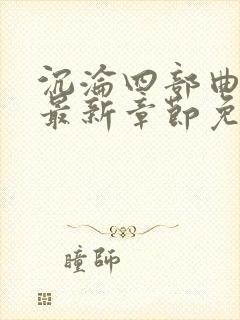 沉沦四部曲
最新章节免
瞳师